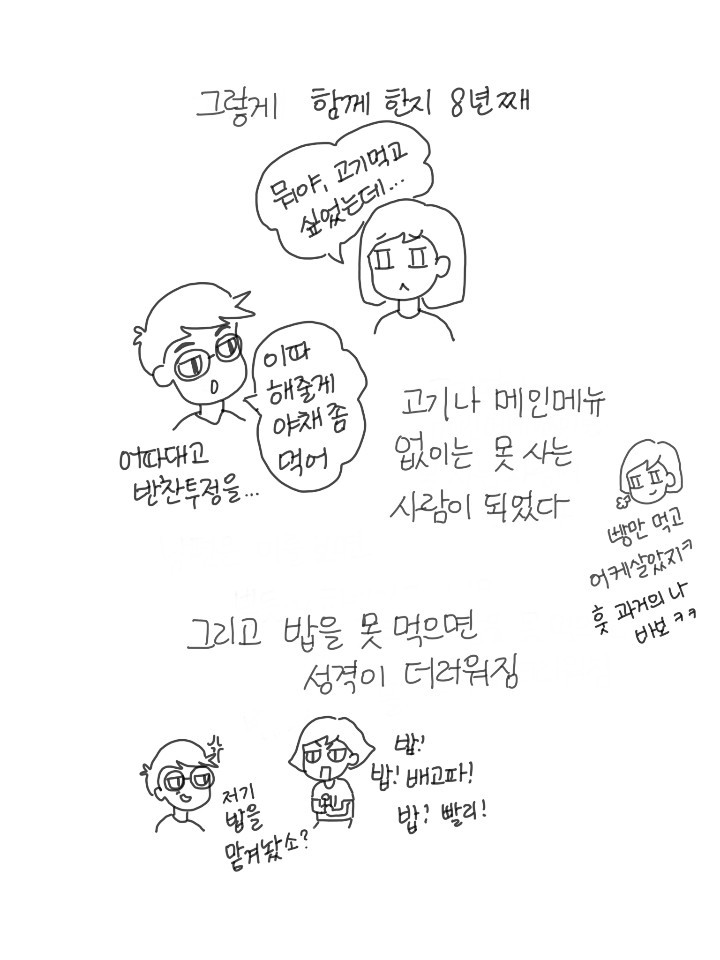 그렇게 함께 한지 8년째
뭐야, 고기먹고
싶었는데...
이따
해줄게
야채 좀
먹어
어따대고
반찬투정을...
고기나 메인메뉴
없이는 못 사는
사람이 되었다
빵만 먹고
어케살았지ㅋ
훗 과거의 나
바보 ㅋㅋ
그리고 밥을 못 먹으면
성격이 더러워짐
저기
밥을
맡겨놨소?
밥!
밥! 배고파!
밥! 빨리!